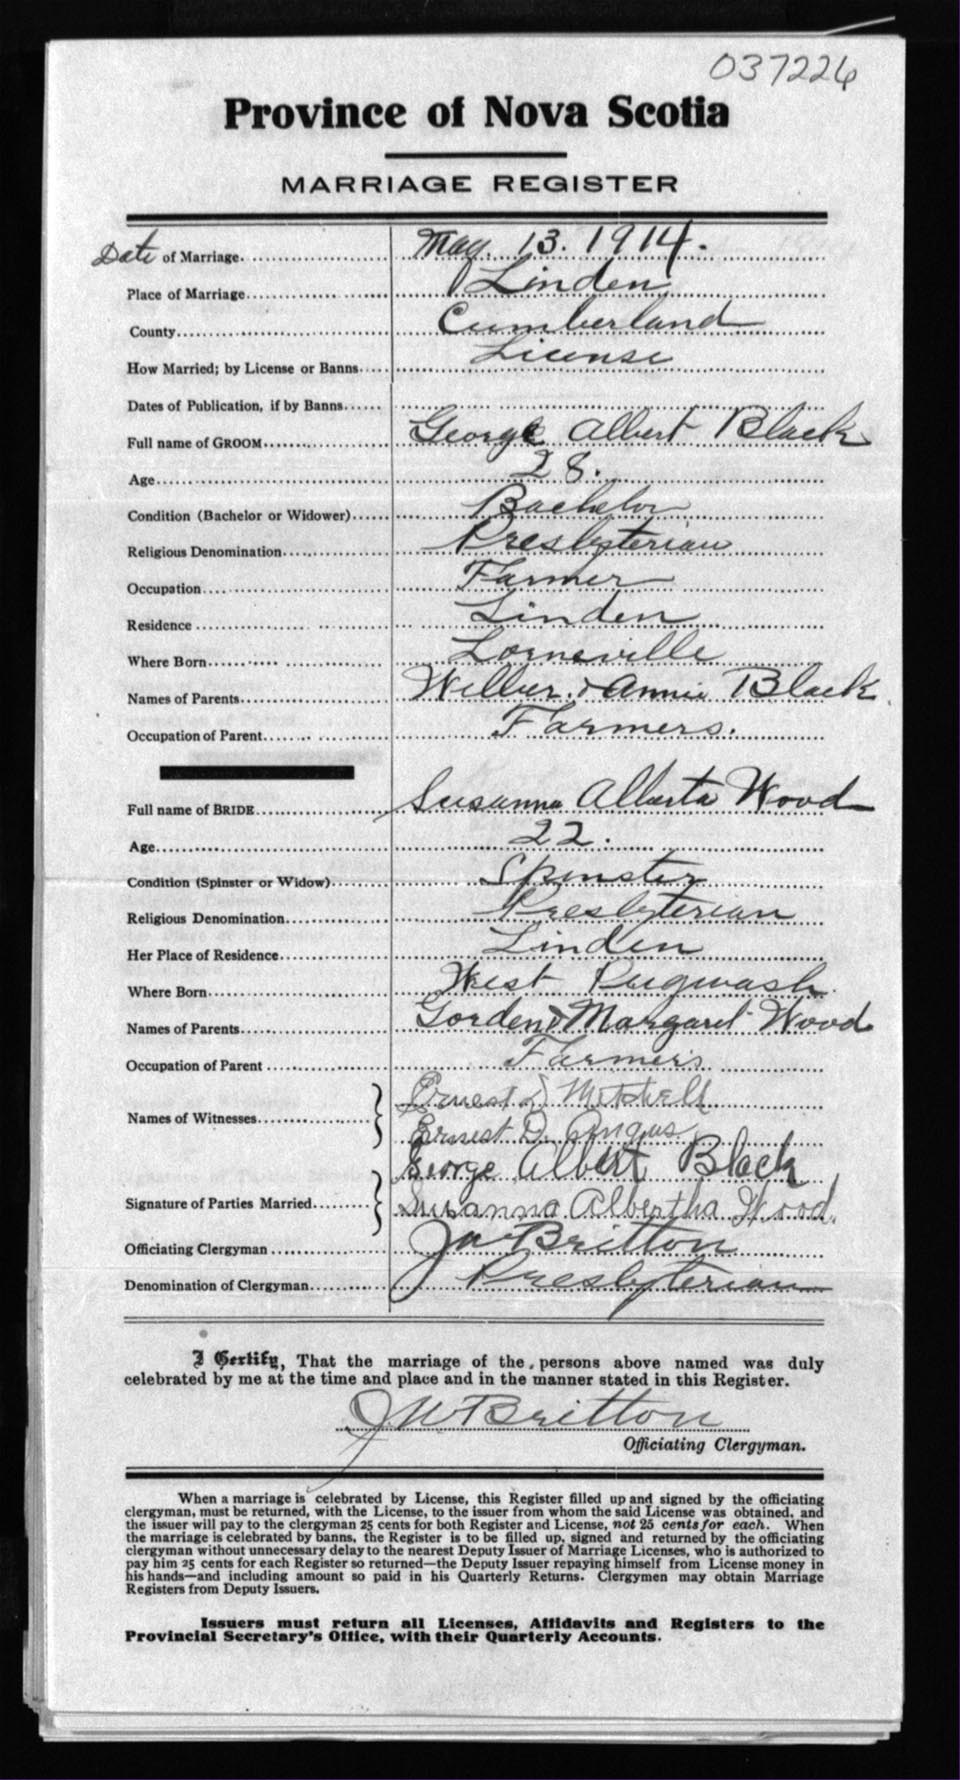 037226
Province of Nova Scotia
MARRIAGE REGISTER
Date of Marriage. May. 13. 1914.
Place of Marriage Linden
County Cumberland
How Married; by License or Banns License
Dates of Publication, if by Banns
Full name of GROOM George Albert Black
Age 28.
Condition (Bachelor or Widower) Bachelor
Religious Denomination Presbyterian
Occupation Farmer
Residence Linden
Where Born Lorneville
Names of Parents Wilbur & Annie Black
Occupation of Parent Farmers.
Full name of BRIDE Susanna Alberta Wood
Age 22.
Condition (Spinster or Widow) Spinster
Religious Denomination Presbyterian
Her Place of Residence Linden
Where Born West Pugwash
Names of Parents Gorden & Margaret Wood
Occupation of Parent Farmers
Names of Witnesses Ernest Mitchell
Ernest D. Angus
George Albert Black
Signature of Parties Married Susanna Albertha Wood.
Officiating Clergyman J W Britton
Denomination of Clergyman Presbyterian
I Certify, That the marriage of the persons above named was duly
celebrated by me at the time and place and in the manner stated in this Register.
J W Britton
Officiating Clergyman.
When a marriage is celebrated by License, this Register filled up and signed by the officiating
clergyman, must be returned, with the License, to the issuer from whom the said License was obtained, and
the issuer will pay to the clergyman 25 cents for both Register and License, not 25 cents for each. When
the marriage is celebrated by banns, the Register is to be filled up, signed and returned by the officiating
clergyman without unnecessary delay to the nearest Deputy Issuer of Marriage Licenses, who is authorized to
pay him 25 cents for each Register so returned—the Deputy Issuer repaying himself from License money in
his hands—and including amount so paid in his Quarterly Returns. Clergymen may obtain Marriage
Registers from Deputy Issuers.
Issuers must return all Licenses, Affidavits and Registers to the
Provincial Secretary's Office, with their Quarterly Accounts.